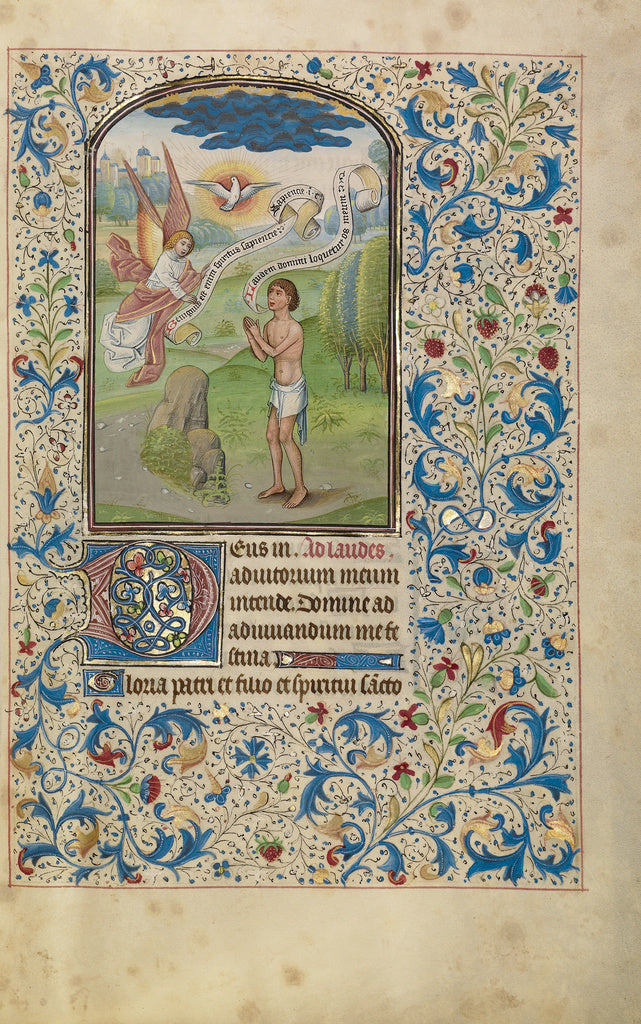 Benignus est enim spiritus sapiencie
sapiencie. i. c.
Laudem domini loquetur os meum
Deus in. Ad laudes.
adiutorium meum
intende. Domine ad
adiuuandum me fe
stina
Gloria patri et filio et spiritui sancto